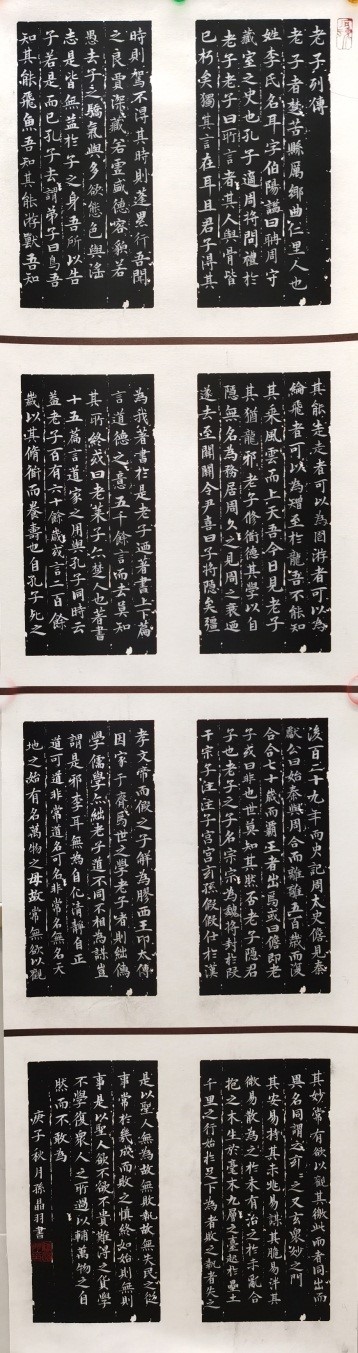 老子列傳
老子者楚苦縣厲鄉曲仁里人也
姓李氏名耳字伯陽謚曰聃周守
藏室之史也孔子適周將問禮於
老子老子曰所言者其人與骨皆
已朽矣獨其言在耳且君子得其
時則駕不得其時則蓬累行吾聞
之良賈深藏若虛盛德容貌若
愚去子之驕氣與多欲態色與淫
志是皆無益於子之身吾所以告
子若是而已孔子去謂弟子曰鳥吾
知其能飛魚吾知其能游獸吾知
其能走走者可以為罔游者可以為
綸飛者可以為矰至於龍吾不能知
其乘風雲而上天吾今日見老子
其猶龍邪老子修道德其學以自
隱無名為務居周久之見周之衰迺
遂去至關關令尹喜曰子將隱矣彊
為我著書於是老子迺著書上下篇
言道德之意五千餘言而去莫知
其所終或曰老萊子亦楚人也著書
十五篇言道家之用與孔子同時云
蓋老子百有六十餘歲或言二百餘
歲以其脩道而養壽也自孔子死之
後百二十九年而史記周太史儋見秦
獻公曰始秦與周合而離離五百歲而復
合合七十歲而霸王者出焉或曰儋即老
子或曰非也世莫知其然否老子隱君
子也老子之子名宗宗為魏將封於段
干宗子注注子宮宮玄孫假假仕於漢
孝文帝而假之子解為膠西王卬太傅
因家于齊焉世之學老子者則絀儒
學儒學亦絀老子道不同不相為謀豈
謂是邪李耳無為自化清靜自正
道可道非常道名可名非常名無名天
地之始有名萬物之母故常無欲以觀
其妙常有欲以觀其徼此兩者同出而
異名同謂之玄玄之又玄衆妙之門
其安易持其未兆易謀其脆易泮其
微易散為之於未有治之於未亂合
抱之木生於毫末九層之臺起於壘土
千里之行始於足下為者敗之執者失之
是以聖人無為故無敗無執故無失民之從
事常於幾成而敗之慎終如始則無則
事是以聖人欲不欲不貴難得之貨學
不學復衆人之所過以輔萬物之自
然而不敢為
庚子秋月孫晶羽書